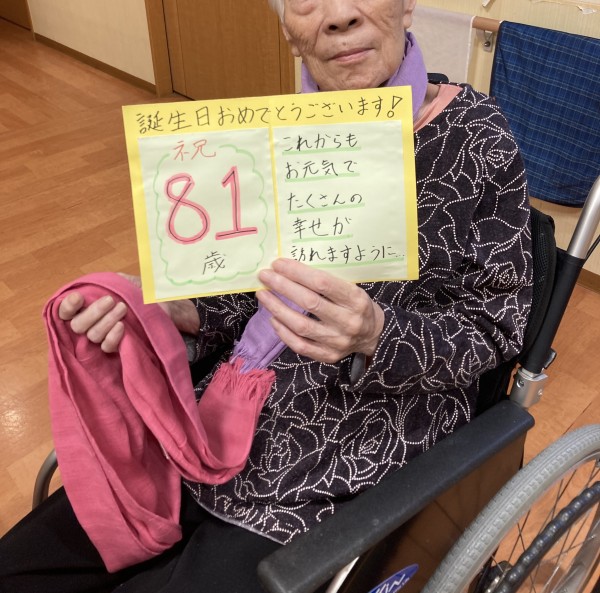 誕生日おめでとうございます!
祝
81
歳
これからも
お元気で
たくさんの
幸せが
訪れますように…